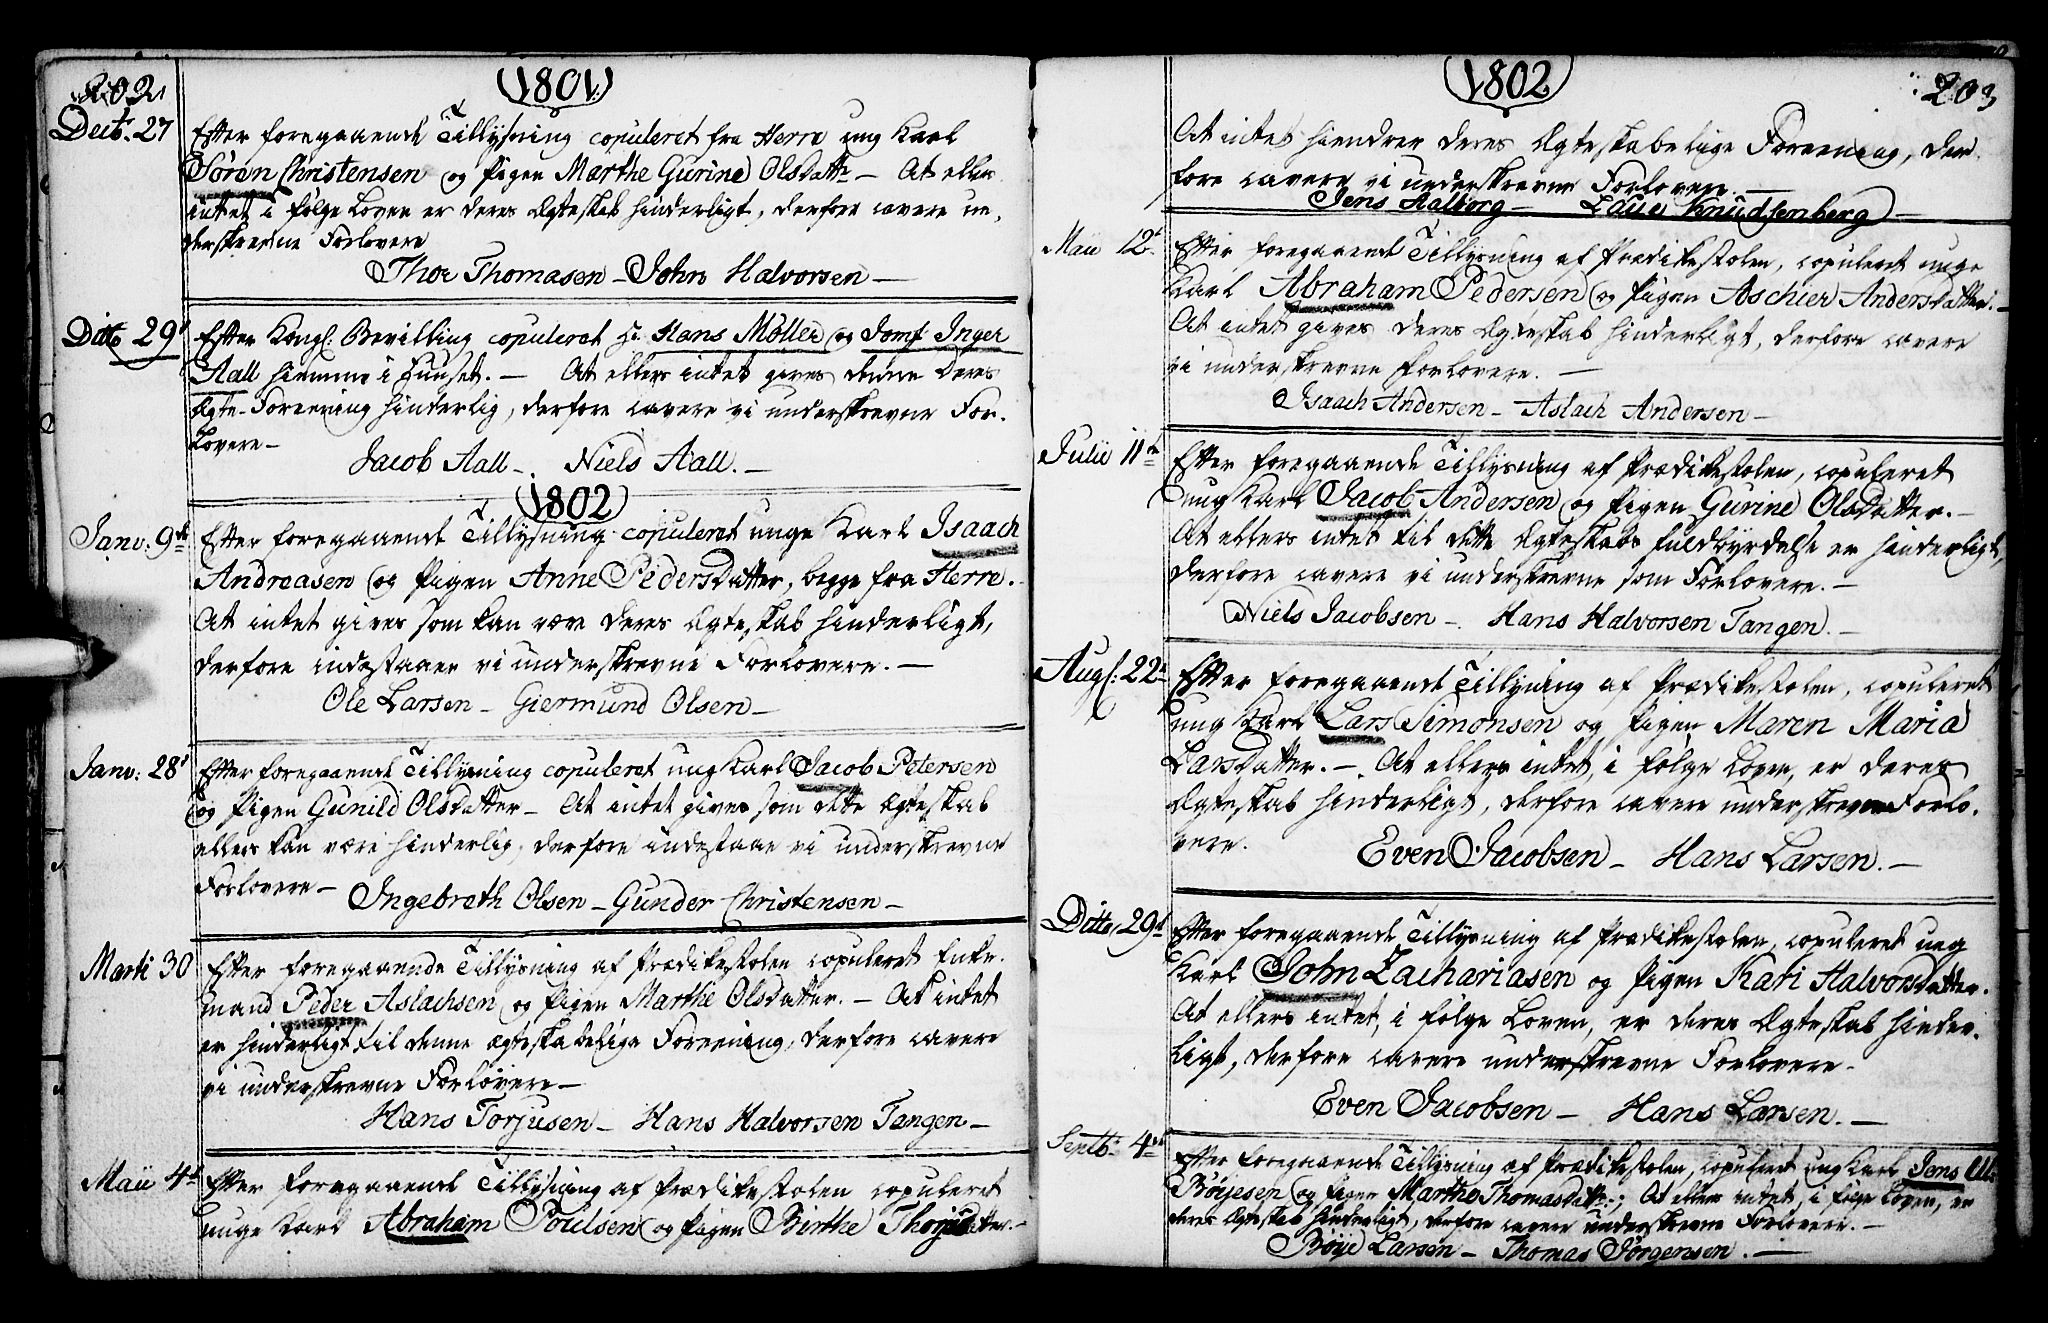 202
1801.
Decbr. 27
Efter foregaaende Tillysning copuleret fra Herre ung Karl
Søren Christensen og Pigen Marthe Gurine Olsdattr – At ellers
intet i følge Loven er deres Ægteskab hinderligt, derfore cavere un-
derskrevne Forlovere
Thor Thomasen – John Halvorsen –
Ditto 29d
Efter Kongl: Bevilling copuleret Hr. Hans Möller og Jomf Inger
Aall hiemme i Huuset. – At ellers intet gives denne Deres
Ægte-Foreening hinderlig, derfore cavere vi underskrevne For-
lovere –
Jacob Aall –. Niels Aall. –
1802
Janv: 9de
Efter foregaaende Tillysning copuleret unge Karl Isaach
Andreasen og Pigen Anne Pedersdatter, begge fra Herre. –
At intet gives som kan være deres Ægteskab hinderligt,
derfore indestaaer vi underskrevne Forlovere. –
Ole Larsen – Giermund Olsen –
Janv: 28d
Efter foregaaende Tillysning copuleret ung Karl Jacob Petersen
og Pigen Gunild Olsdatter – At intet gives som dette Ægteskab
ellers kan være hinderlig, derfore indestaae vi underskrevne
Forlovere – Ingebreth Olsen – Gunder Christensen –
Marti 30
Efter foregaaende Tillysning af Prædikestolen copuleret Enke-
mand Peder Aslachsen og Pigen Marthe Olsdatter. – At intet
er hinderligt til denne ægteskabelige Foreening, derfore cavere
vi underskrevne Forlovere –
Hans Torjusen – Hans Halvorsen Tangen –
Maii 4d
Efter foregaaende Tillysning af Prædikestolen copuleret
unge Karl Abraham Poulsen og Pigen Birthe Thorjusdatter. –
1802
203
At intet hindrer deres Ægteskabelige Foreening, der-
fore cavere vi underskrevne Forlovere. –
Jens Aalborg – Laue Knudsenberg –
Maii 12t
Efter foregaaende Tillysning af Prædikestolen, copuleret unge
Karl Abraham Pedersen og Pigen Aschier Andersdatter. –
At intet gives deres Ægteskab hinderligt, derfore cavere
vi underskrevne Forlovere. –
Isaach Andersen – Aslach Andersen –
Julii 11te
Efter foregaaende Tillysning af Prædikestolen, copuleret
ung Karl Jacob Andersen og Pigen Gurine Olsdatter. –
At ellers intet til dette Ægteskabs fuldbyrdelse er hinderligt,
derfore cavere vi underskrevne som Forlovere. –
Niels Jacobsen –. Hans Halvorsen Tangen. –
Augs: 22d
Efter foregaaende Tillysning af Prædikestolen, copuleret
ung Karl Lars Simonsen og Pigen Maren Maria
Larsdatter. – At ellers intet, i følge Loven, er deres
Ægteskab hinderligt, derfore cavere underskrevne Forlo-
vere. Even Jacobsen – Hans Larsen. –
Ditto, 29d
Efter foregaaende Tillysning af Prædikestolen, copuleret ung
Karl John Zachariasen og Pigen Kari Halvorsdatter.
At ellers intet, i følge Loven, er deres Ægteskab hinder-
ligt, derfore cavere underskrevne Forlovere –
Even Jacobsen – Hans Larsen. –
Septbr 4de
Efter foregaaende Tillysning af Prædikestolen, copuleret ung Karl Jens
Børjesen og Pigen Marthe Thomasdattr.; At ellers intet, i følge Loven, er
deres Ægteskab hinderligt, derfore cavere underskrevne Forlovere. –
Børje Larsen – Thomas Jørgensen. –